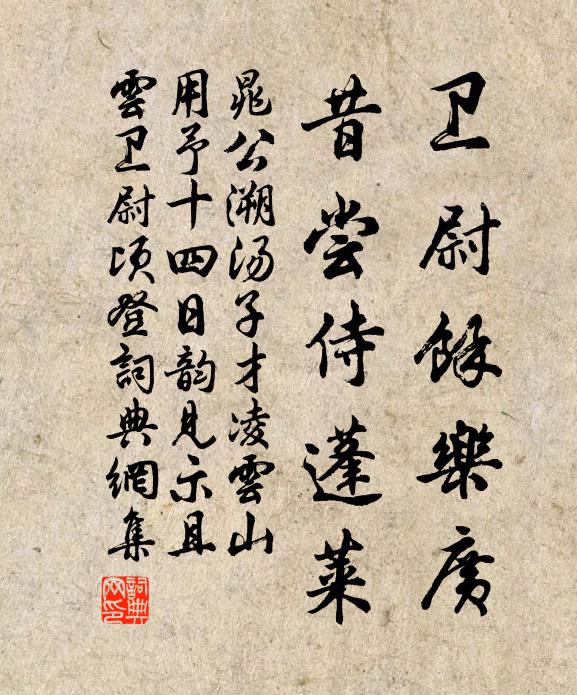 卫尉餘樂廣
昔尝侍蓬莱
晁公溯汤子才凌雲山
用予十四日韵见示且
雲卫尉顷登詞典網集
詞典